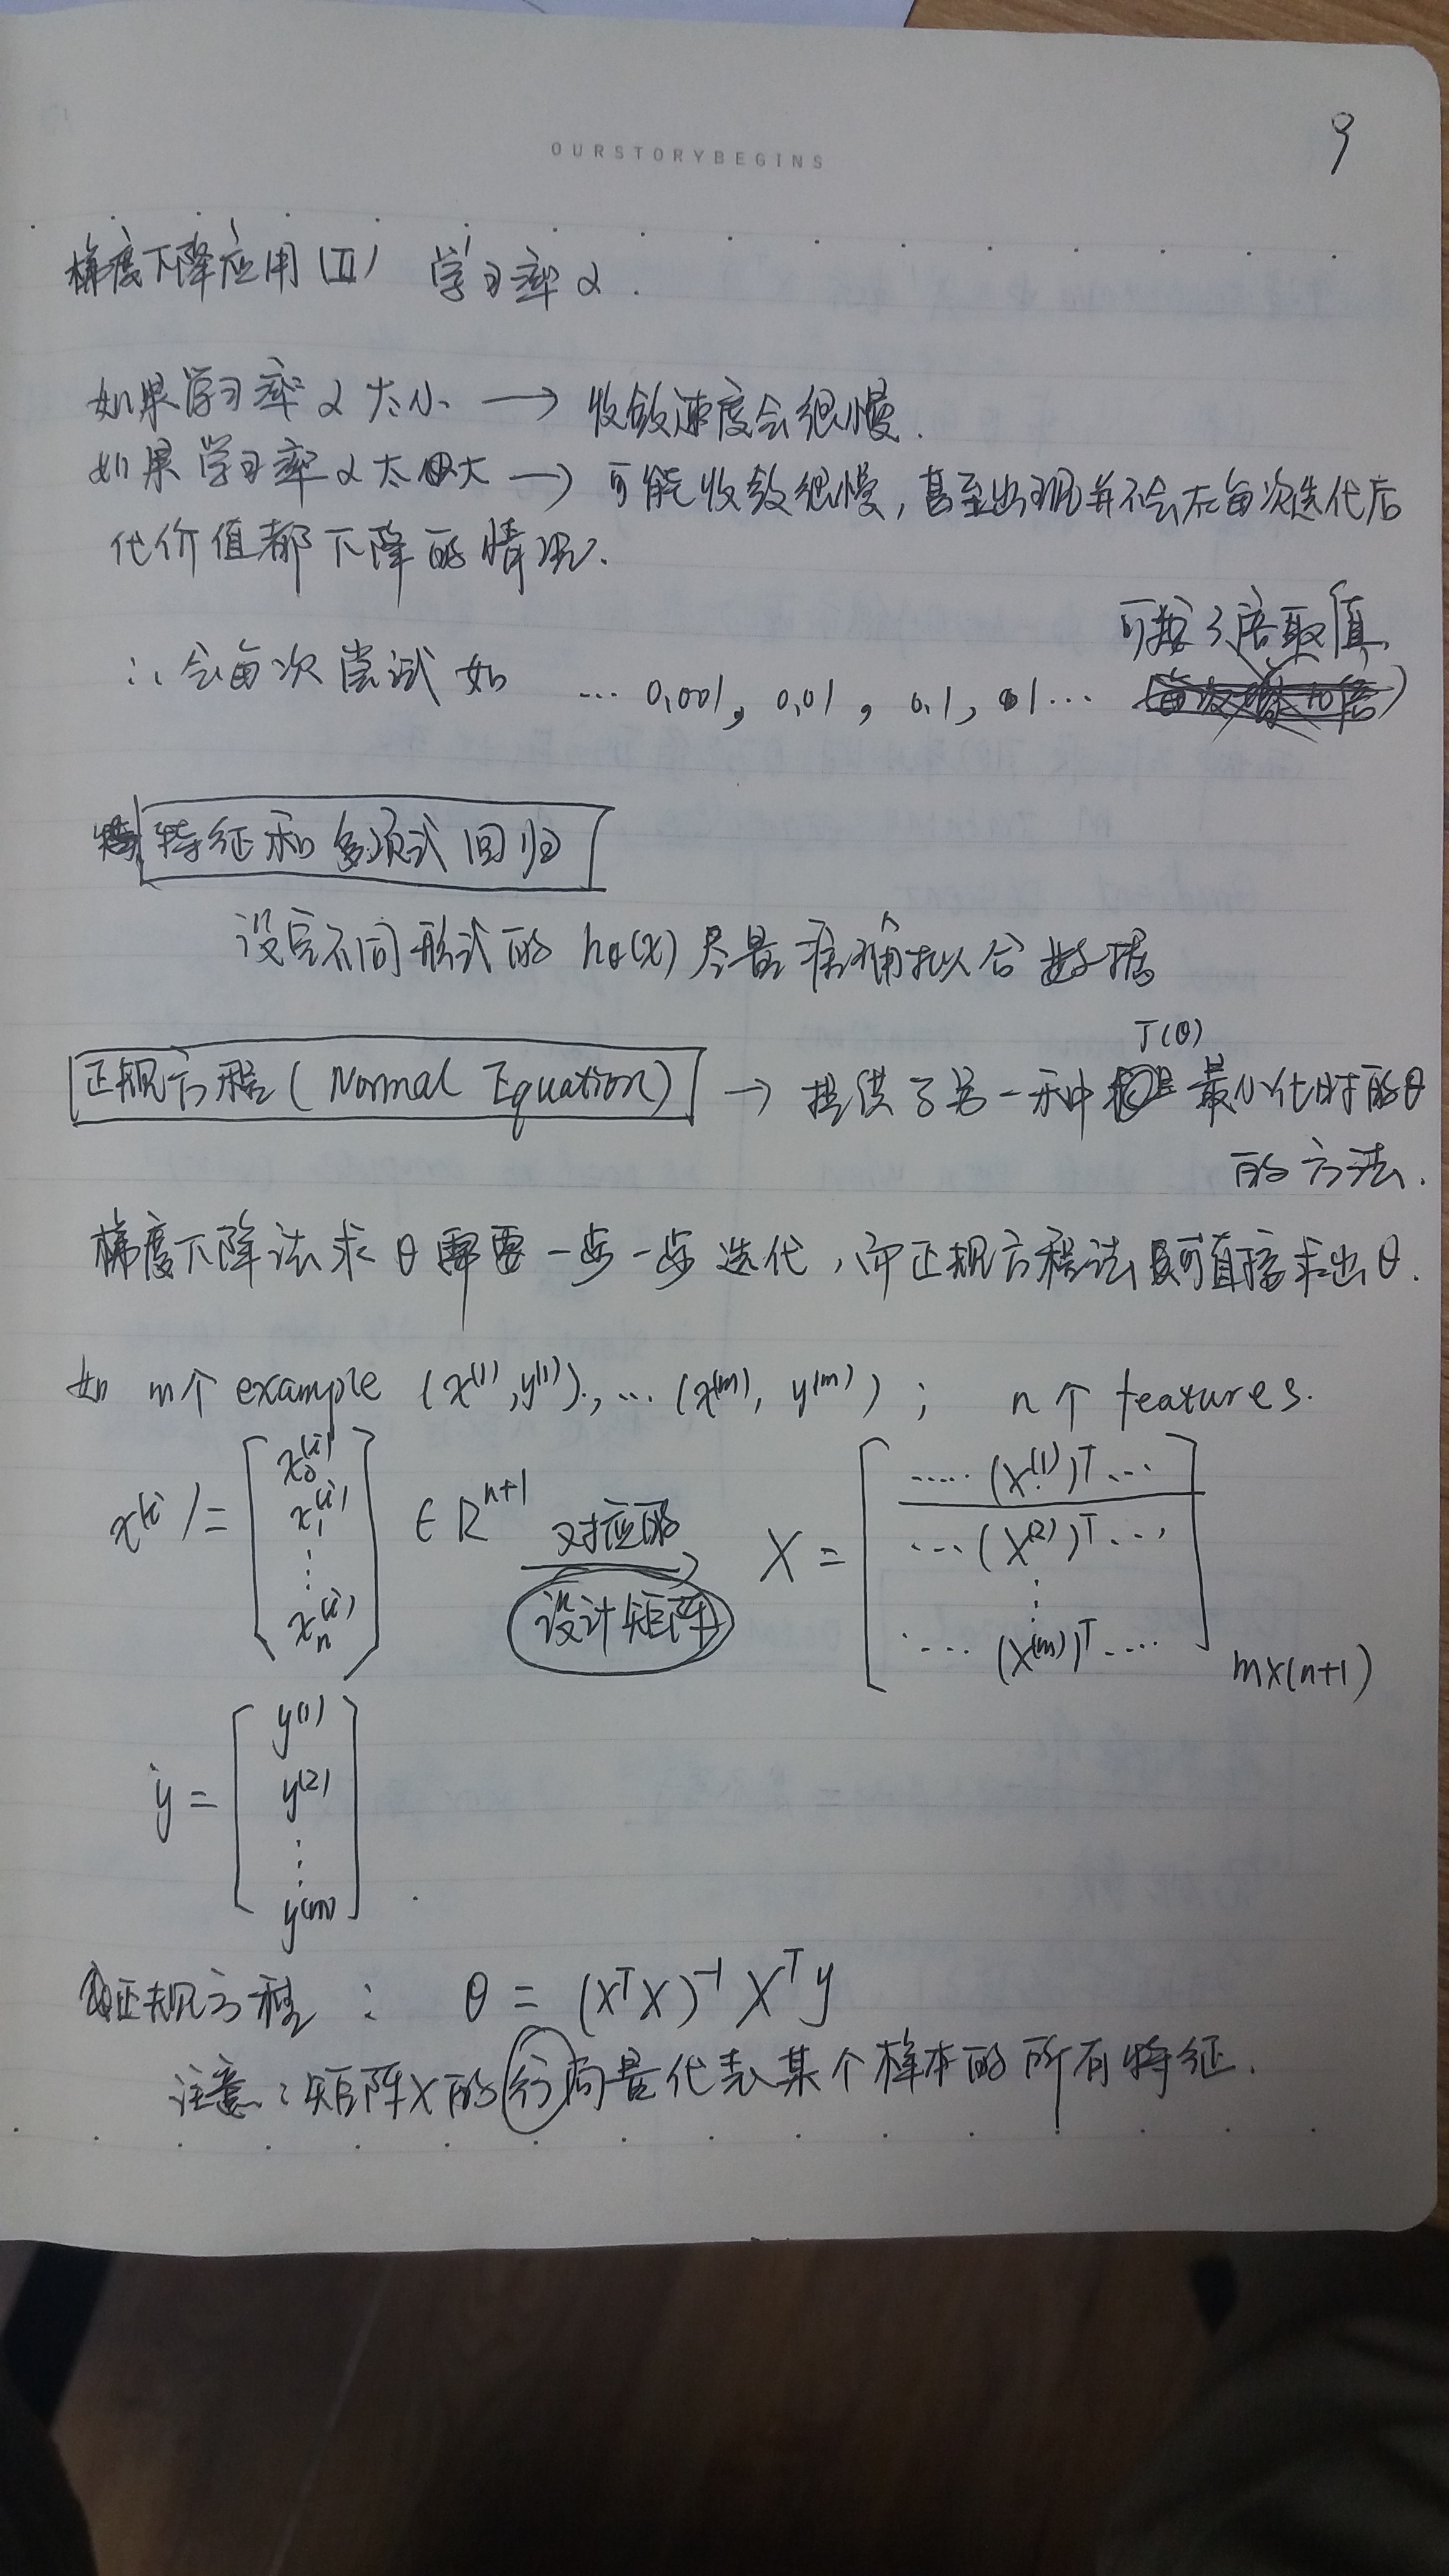 OURSTORYBEGINS
9
梯度下降应用(Ⅱ) 学习率α.
如果学习率α太小 → 收敛速度会很慢.
如果学习率α太大 → 可能收敛很慢,甚至出现并不会在每次迭代后
代价值都下降的情况.
可按3倍取值
∴ 会每次尝试如 … 0.001, 0.01, 0.1, 1…
特征和多项式回归
设定不同形式的 hθ(x) 尽量准确拟合数据
J(θ)
正规方程(Normal Equation) → 提供了另一种 最小化时的θ
的方法.
梯度下降法求θ需要一步一步迭代,而正规方程法则可直接求出θ.
如 m个 example (x⁽¹⁾, y⁽¹⁾), … (x⁽ᵐ⁾, y⁽ᵐ⁾) ; n个 features.
x⁽ⁱ⁾ = [x₀⁽ⁱ⁾ x₁⁽ⁱ⁾ ⋮ xₙ⁽ⁱ⁾] ∈ Rⁿ⁺¹ 对应的 设计矩阵 → X = [..... (X⁽¹⁾)ᵀ ... ... (X⁽²⁾)ᵀ ... ⋮ .... (X⁽ᵐ⁾)ᵀ ....] m×(n+1)
y = [y⁽¹⁾ y⁽²⁾ ⋮ y⁽ᵐ⁾]
正规方程 : θ = (XᵀX)⁻¹ Xᵀy
注意:矩阵X的行向量代表某个样本的所有特征.